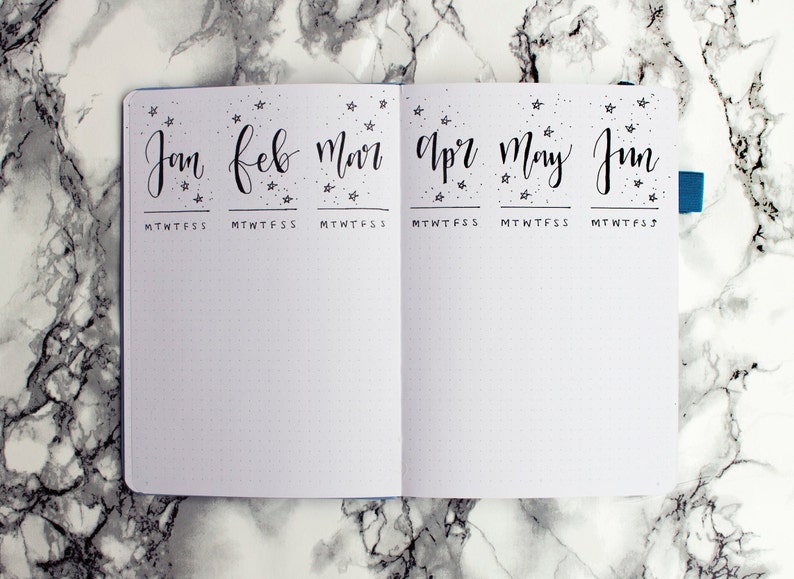 Jan feb Mar
MTWTFSS MTWTFSS MTWTFSS
apr May Jun
MTWTFSS MTWTFSS MTWTFS